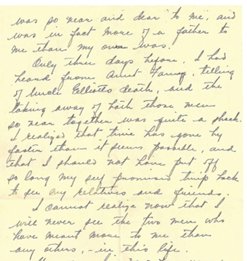 was so near and dear to me, and
was in fact more of a father to
me than my own was.
Only three days before, I had
heard from Aunt Fanny, telling
of Uncle Elliotts death, and the
taking away of both those men
so near together was quite a shock.
I realize that time has gone by
faster than it seems possible, and
that I should not have put off
so long my self promised trip back
to see my relatives and friends.
I cannot realize now that I
will never see the two men who
have meant more to me than
any others, - in this life.